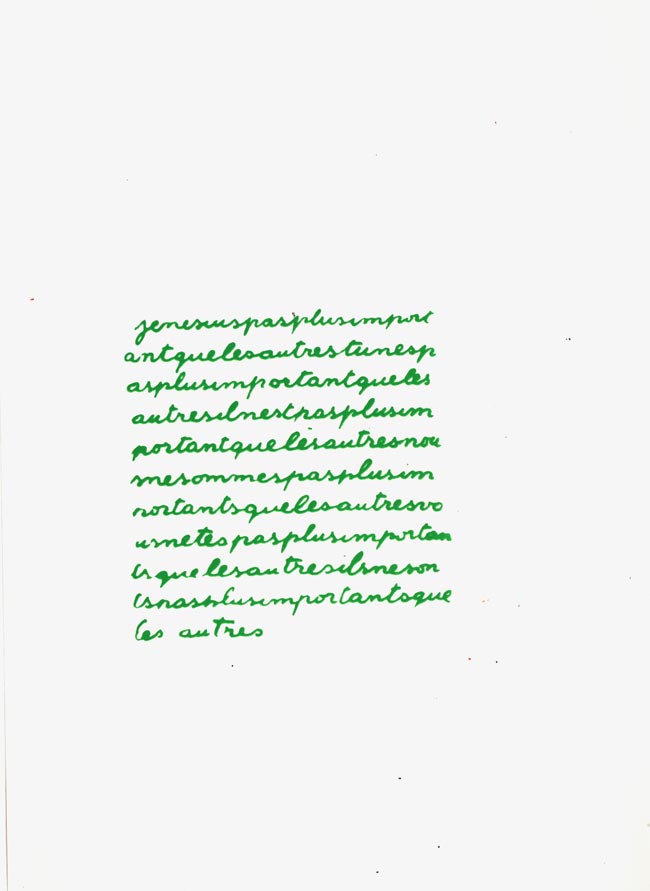 jenesuispasplusimport
antquelesautrestunesp
asplusimportantqueles
autresilnestpasplusim
portantquelesautresnou
snesommespasplusim
portantsquelesautresvo
usnetespasplusimportan
tsquelesautresilsneson
tspasplusimportantsque
les autres